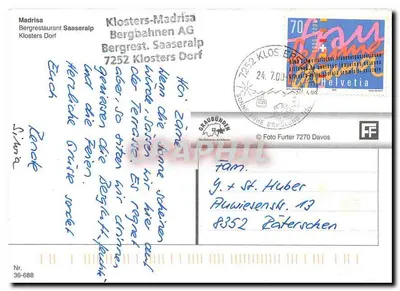 Madrisa
Bergrestaurant Saaseralp
Klosters Dorf
Klosters-Madrisa
Bergbahnen AG
Bergrest. Saaseralp
7252 Klosters Dorf
7252 KLOSTERS
24. 7.00
70
Helvetia
GRAUBÜNDEN
© Foto Furter 7270 Davos
FF
Hoi Zäme
Wenn die Sonne scheinen
würde, sässen wir hier auf
der Terrasse. Es regnet
aber, so sitzen wir drinnen
geniessen die Bergluft
und die Ferien.
Herzliche Grüsse sendet
Euch
Renate
Silvia
Fam.
G. + St. Huber
Auwiesenstr. 13
8352 Räterschen
Nr.
36-688